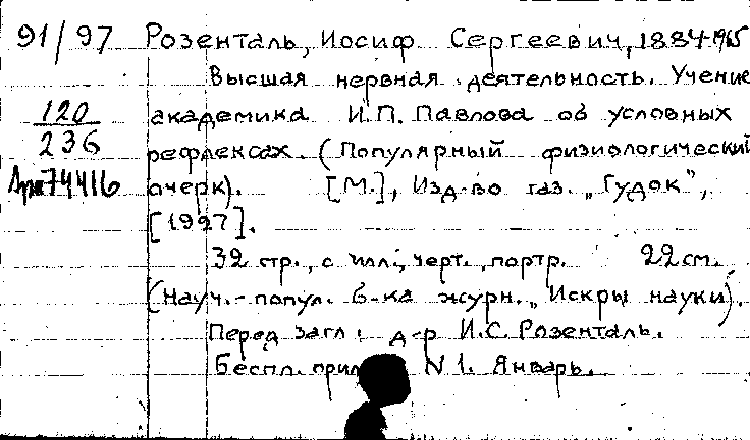 91/97 Розенталь, Иосиф Сергеевич, 1884-1965
Высшая нервная деятельность. Учение
120 академика И.П. Павлова об условных
236 рефлексах. (Популярный физиологический
74416 очерк). [М.], Изд-во газ. „Гудок",
[1927].
32 стр., с илл., черт., портр. 22 см.
(Науч.-попул. б-ка журн. „Искры науки).
Перед загл: д-р И.С. Розенталь.
Беспл. прил N 1. Январь.